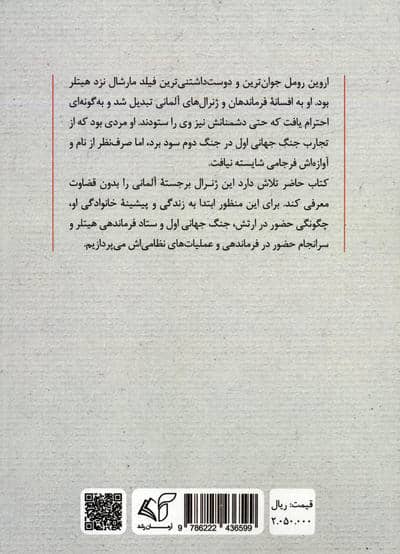 اروین رومل جوان‌ترین و دوست‌داشتنی‌ترین فیلد مارشال نزد هیتلر
بود. او به افسانهٔ فرماندهان و ژنرال‌های آلمانی تبدیل شد و به‌گونه‌ای
احترام یافت که حتی دشمنانش نیز وی را ستودند. او مردی بود که از
تجارب جنگ جهانی اول در جنگ دوم سود برد، اما صرف‌نظر از نام و
آوازه‌اش فرجامی شایسته نیافت.
کتاب حاضر تلاش دارد این ژنرال برجستهٔ آلمانی را بدون قضاوت
معرفی کند. برای این منظور ابتدا به زندگی و پیشینهٔ خانوادگی او،
چگونگی حضور در ارتش، جنگ جهانی اول و ستاد فرماندهی هیتلر و
سرانجام حضور در فرماندهی و عملیات‌های نظامی‌اش می‌پردازیم.
قیمت: ریال
۲.۰۵۰.۰۰۰
9 786222 436599